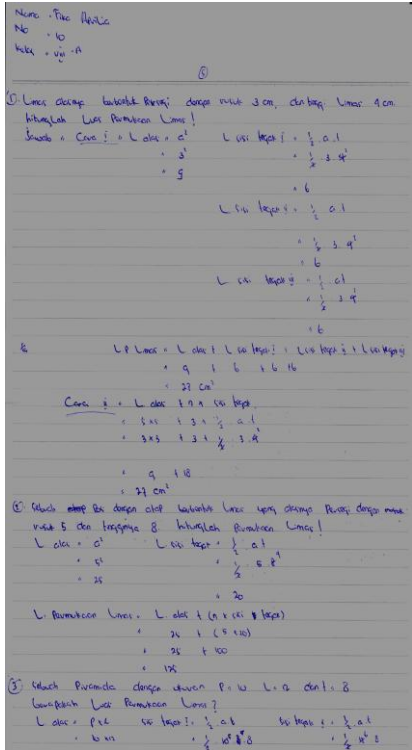 Nama : Fika Aprilia
No : 10
Kelas : VIII - A
①
① Limas alasnya berbentuk Persegi dengan rusuk 3 cm, dan tinggi Limas 4 cm.
hitunglah Luas Permukaan Limas !
Jawab : Cara i = L alas = a² L sisi tegak i = ½ . a . t
= 3² = ½ . 3 . 4
= 9 = 6
L sisi tegak ii = ½ . a . t
= ½ . 3 . 4
= 6
L sisi tegak iii = ½ . a . t
= ½ . 3 . 4
= 6
L P Limas = L alas + L sisi tegak i + L sisi tegak ii + L sisi tegak iii
= 9 + 6 + 6 + 6
= 27 cm²
Cara ii = L alas + n x sisi tegak
= s x s + 3 + ½ . a . t
= 3 x 3 + 3 + ½ . 3 . 4
= 9 + 18
= 27 cm²
② Sebuah Pos dengan atap berbentuk Limas yang alasnya Persegi dengan
rusuk 5 dan tingginya 8 hitunglah Permukaan Limas !
L alas = a² L sisi tegak = ½ . a . t
= 5² = ½ . 5 . 8
= 25 = 20
L. Permukaan Limas = L alas + (n x sisi tegak)
= 25 + (5 x 20)
= 25 + 100
= 125
③ Sebuah Piramida dengan ukuran P = 10 L = 12 dan t = 8
berapakah Luas Permukaan Limas ?
L alas = p x l sisi tegak i = ½ . a . t sisi tegak ii = ½ . a . t
= 10 x 12 = ½ . 10 . 8 = ½ . 8